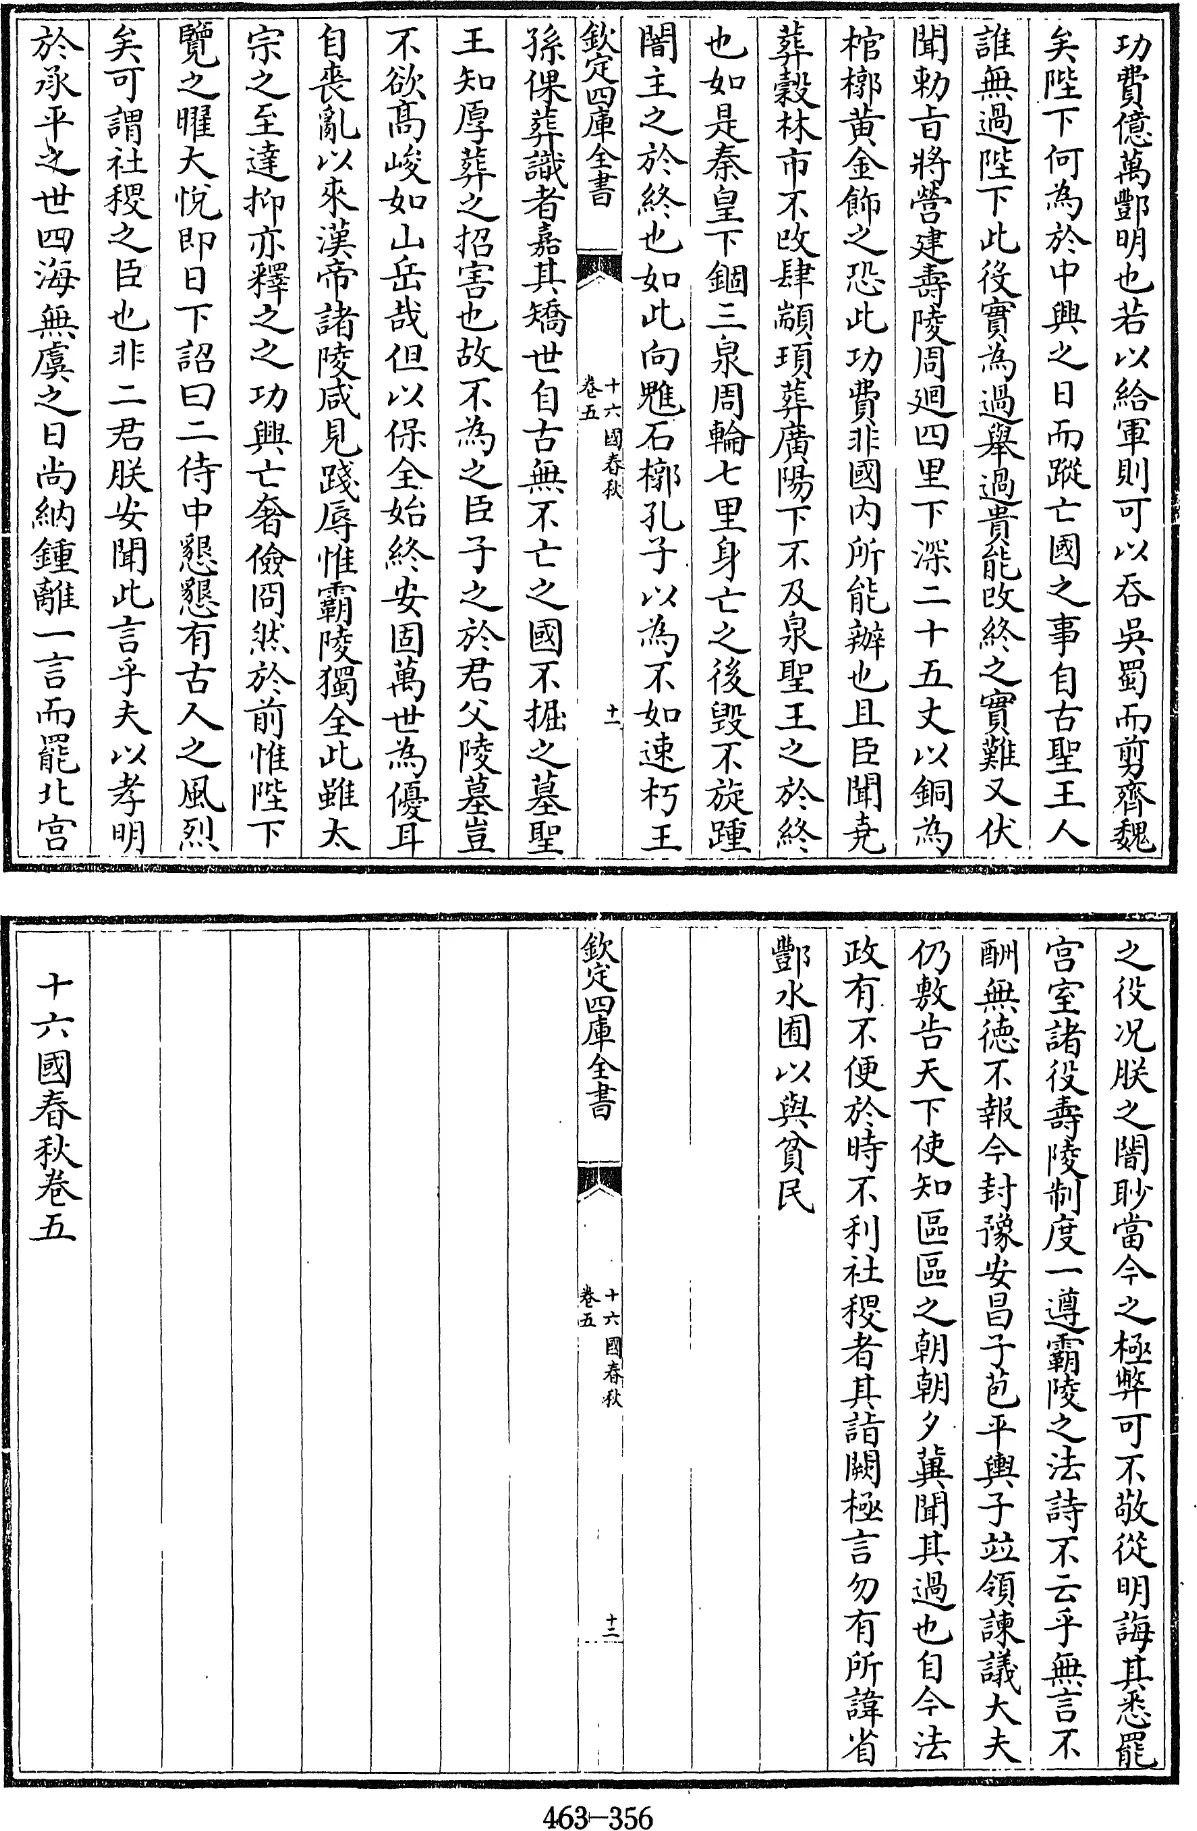 功費億萬酆明也若以給軍則可以吞吳蜀而剪齊魏
矣陛下何為於中興之日而蹤亡國之事自古聖王人
誰無過陛下此役實為過舉過貴能改終之實難又伏
聞勅旨將營建壽陵周迴四里下深二十五丈以銅為
棺槨黃金飾之恐此功費非國內所能辦也且臣聞堯
葬穀林市不改肆顓頊葬廣陽下不及泉聖王之於終
也如是秦皇下錮三泉周輪七里身亡之後毀不旋踵
闇主之於終也如此向魋石槨孔子以為不如速朽王
欽定四庫全書
十六國春秋
卷五
十一
孫倮葬識者嘉其矯世自古無不亡之國不掘之墓聖
王知厚葬之招害也故不為之臣子之於君父陵墓豈
不欲髙峻如山岳哉但以保全始終安固萬世為優耳
自喪亂以來漢帝諸陵咸見踐辱惟霸陵獨全此雖太
宗之至達抑亦釋之之功興亡奢儉冏然於前惟陛下
覽之曜大悅即日下詔曰二侍中懇懇有古人之風烈
矣可謂社稷之臣也非二君朕安聞此言乎夫以孝明
於承平之世四海無虞之日尚納鍾離一言而罷北宮
之役况朕之闇眇當今之極弊可不敬從明誨其悉罷
宮室諸役壽陵制度一遵霸陵之法詩不云乎無言不
酬無徳不報今封豫安昌子苞平輿子竝領諫議大夫
仍敷告天下使知區區之朝朝夕冀聞其過也自今法
政有不便於時不利社稷者其詣闕極言勿有所諱省
酆水囿以與貧民
欽定四庫全書
十六國春秋
卷五
十二
十六國春秋卷五
463-356